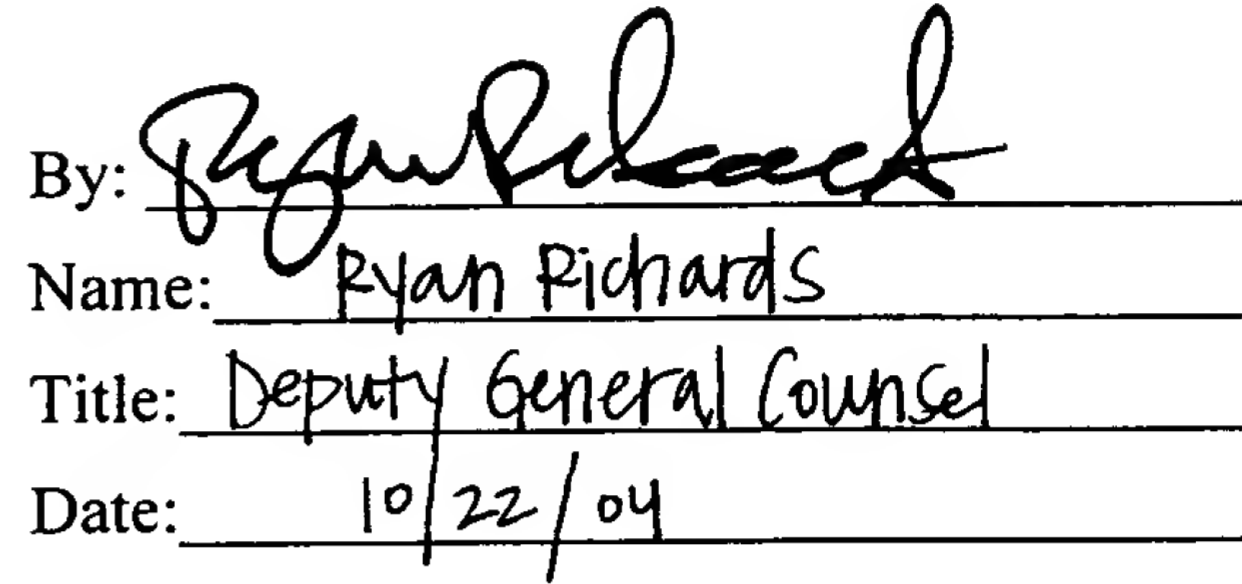 By: Ryan Richards
Name: Ryan Richards
Title: Deputy General Counsel
Date: 10/22/04